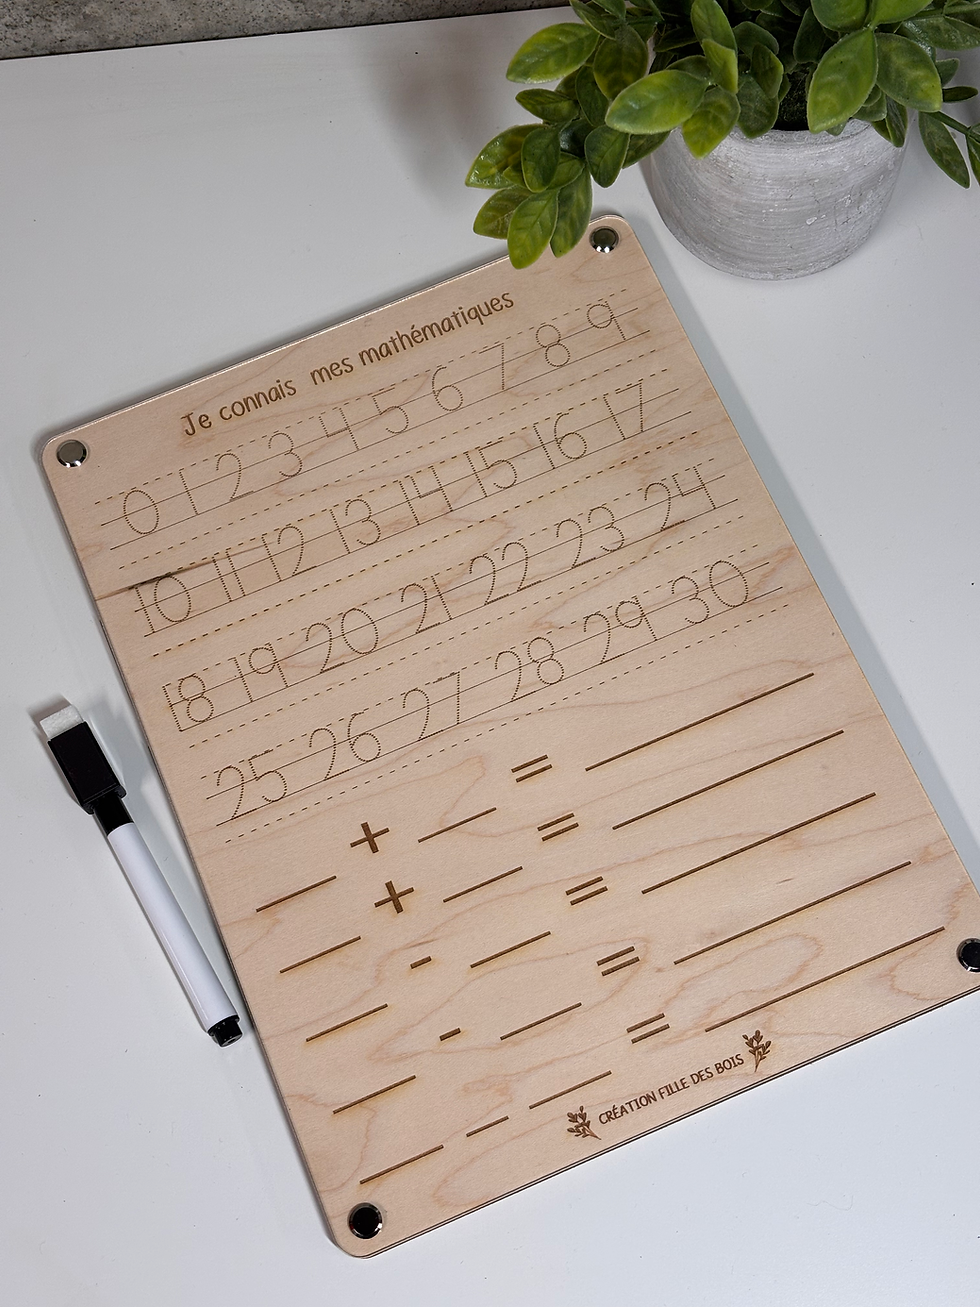 Je connais mes mathématiques
0 1 2 3 4 5 6 7 8 9
10 11 12 13 14 15 16 17
18 19 20 21 22 23 24
25 26 27 28 29 30
___ + ___ = ______
___ + ___ = ______
___ - ___ = ______
___ - ___ = ______
___ __ ___ = ______
CRÉATION FILLE DES BOIS